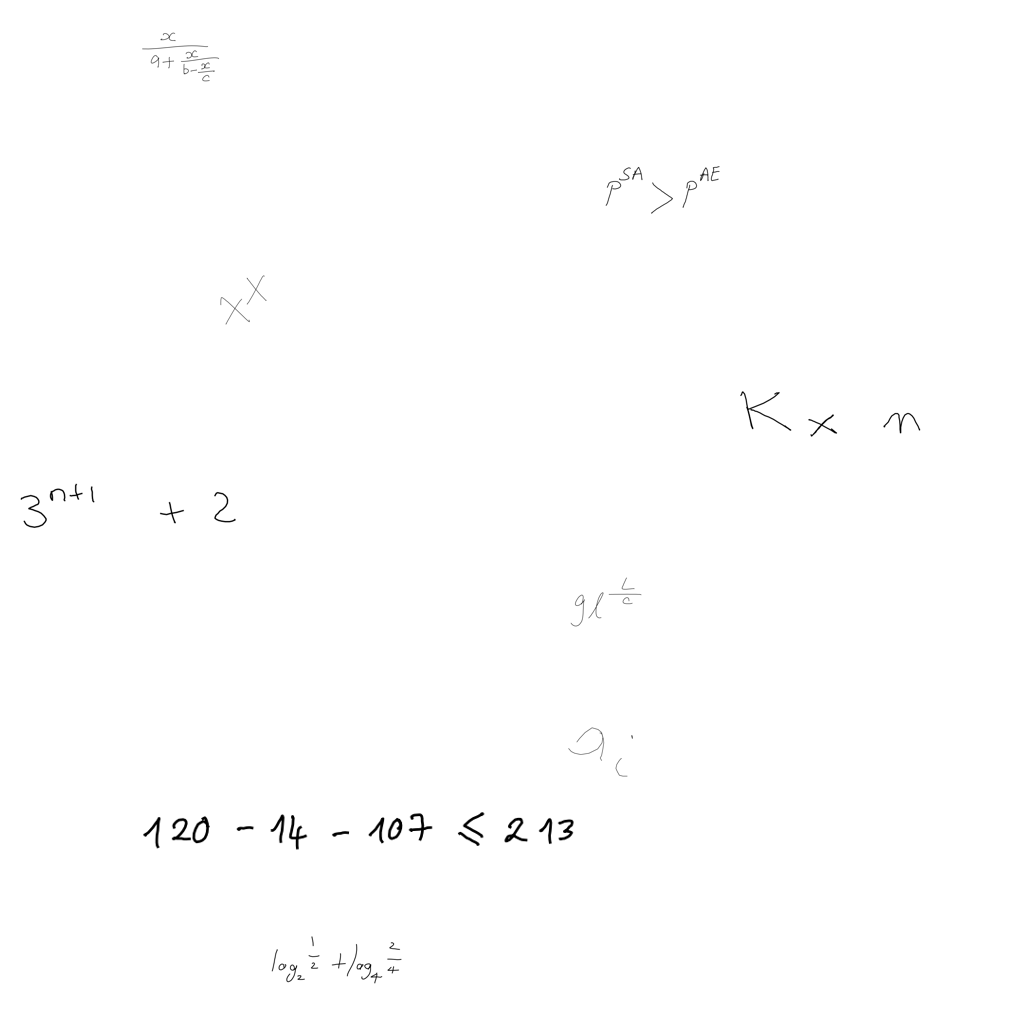 \frac{x}{a+\frac{x}{b-\frac{x}{c}}}
p^{SA} > p^{AE}
x^x
K × n
3^{n+1} + 2
gl^{\frac{L}{c}}
a_i
120 - 14 - 107 ≤ 213
log_2 \frac{1}{2} + log_4 \frac{2}{4}